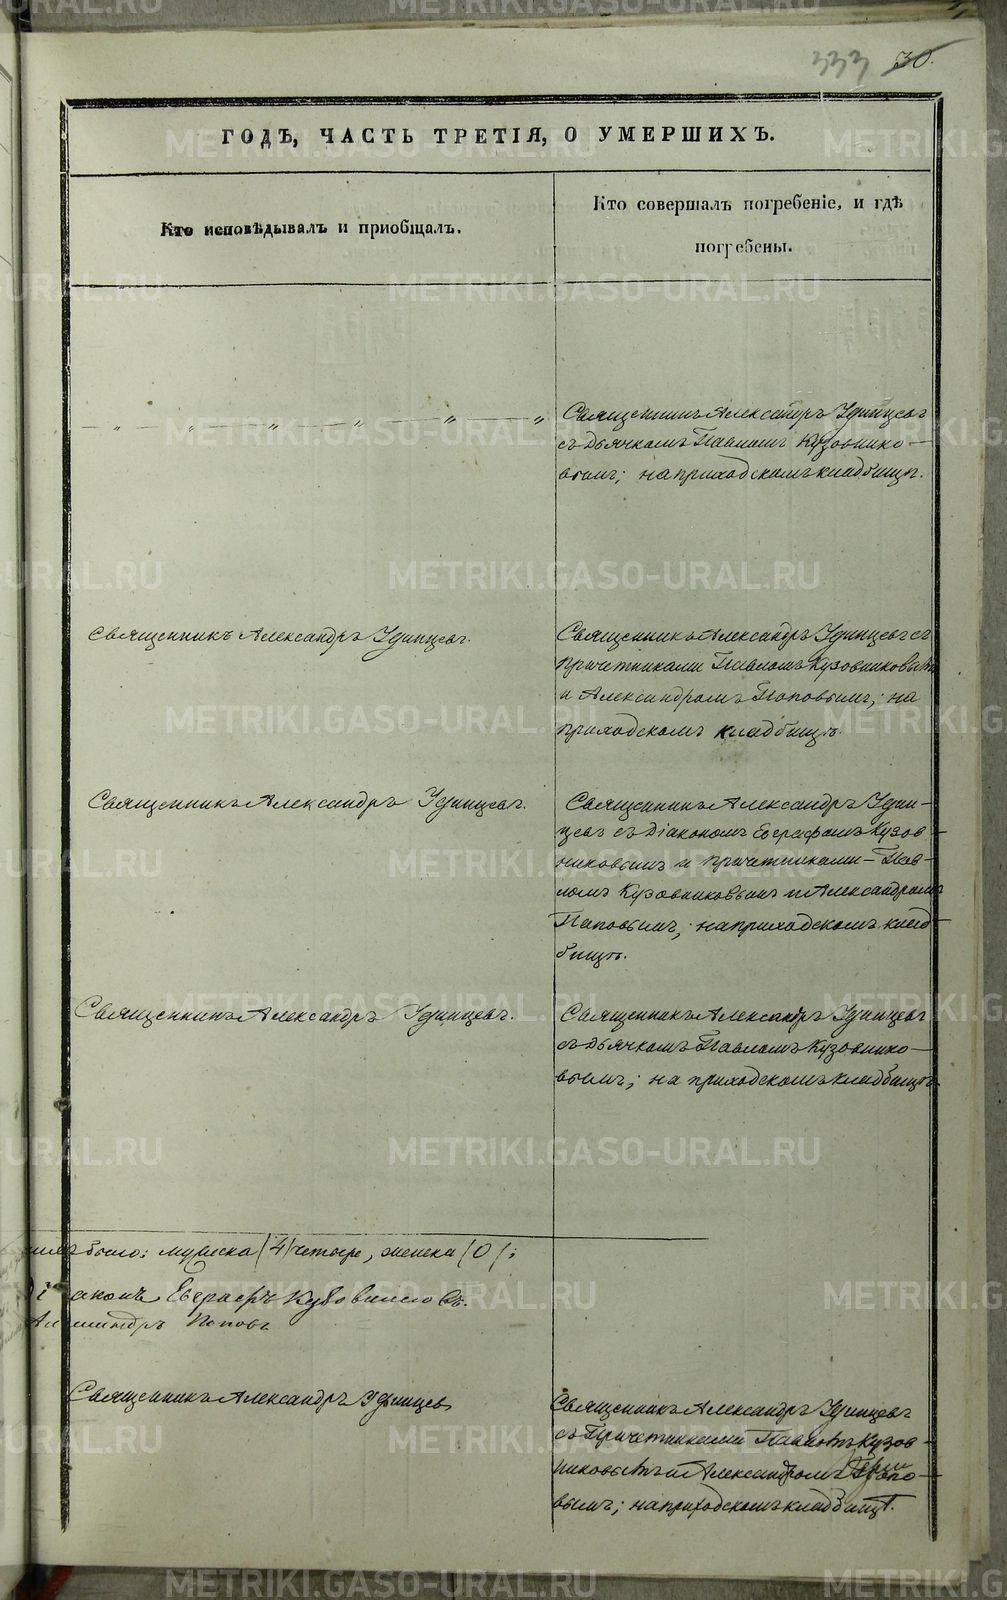 333 30.
ГОДѢ, ЧАСТЬ ТРЕТІЯ, О УМЕРШИХЪ.
Кто исповѣдывалъ и приобщалъ.
Кто совершалъ погребеніе, и гдѣ
погребены.
— „ — „ — „ — „ — „ — „
Священникъ Александръ Удинцевъ
съ Дьячкомъ Павломъ Кузовнико—
вымъ; на приходскомъ кладбищѣ.
Священникъ Александръ Удинцевъ.
Священникъ Александръ Удинцевъ съ
причетниками Павломъ Кузовниковымъ
и Александромъ Поповымъ; на
приходскомъ кладбищѣ.
Священникъ Александръ Удинцевъ.
Священникъ Александръ Удин—
цевъ съ Діакономъ Евграфомъ Кузов—
никовымъ и причетниками — Пав—
ломъ Кузовниковымъ и Александромъ
Поповымъ; на приходскомъ клад—
бищѣ.
Священникъ Александръ Удинцевъ.
Священникъ Александръ Удинцевъ
съ Дьячкомъ Павломъ Кузовнико—
вымъ; на приходскомъ кладбищѣ.
было: мужеска /4/ четыре, женска /0/;
Діаконъ Евграфъ Кузовниковъ.
Александръ Поповъ
Священникъ Александръ Удинцевъ
Священникъ Александръ Удинцевъ
съ Причетниками Павломъ Кузов—
никовымъ и Александромъ Попо—
вымъ; на приходскомъ кладбищѣ.
METRIKI.GASO-URAL.RU